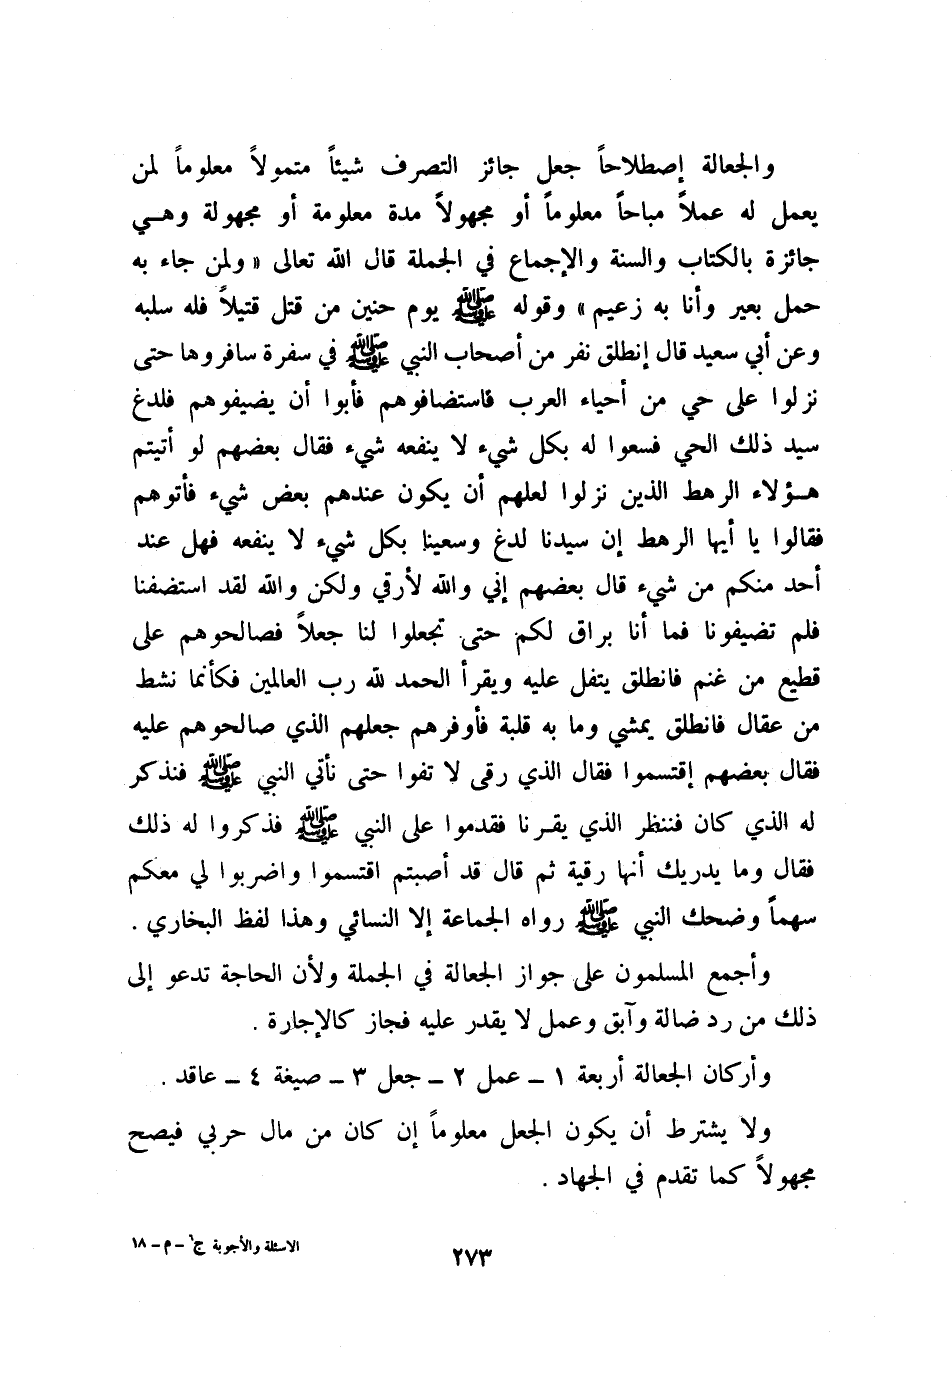 والجعالة إصطلاحاً جعل جائز التصرف شيئاً متمولاً معلوماً لمن
يعمل له عملاً مباحاً معلوماً أو مجهولاً مدة معلومة أو مجهولة وهــي
جائزة بالكتاب والسنة والإجماع في الجملة قال الله تعالى « ولمن جاء به
حمل بعير وأنا به زعيم » وقوله ﷺ يوم حنين من قتل قتيلاً فله سلبه
وعن أبي سعيد قال إنطلق نفر من أصحاب النبي ﷺ في سفرة سافروها حتى
نزلوا على حي من أحياء العرب فاستضافوهم فأبوا أن يضيفوهم فلدغ
سيد ذلك الحي فسعوا له بكل شيء لا ينفعه شيء فقال بعضهم لو أتيتم
هــؤلاء الرهط الذين نزلوا لعلهم أن يكون عندهم بعض شيء فأتوهم
فقالوا يا أيها الرهط إن سيدنا لدغ وسعينا بكل شيء لا ينفعه فهل عند
أحد منكم من شيء قال بعضهم إني والله لأرقي ولكن والله لقد استضفنا
فلم تضيفونا فما أنا براق لكم حتى تجعلوا لنا جعلاً فصالحوهم على
قطيع من غنم فانطلق يتفل عليه ويقرأ الحمد لله رب العالمين فكأنما نشط
من عقال فانطلق يمشي وما به قلبة فأوفرهم جعلهم الذي صالحوهم عليه
فقال بعضهم إقتسموا فقال الذي رقى لا تفوا حتى نأتي النبي ﷺ فنذكر
له الذي كان فننظر الذي يقــرنا فقدموا على النبي ﷺ فذكروا له ذلك
فقال وما يدريك أنها رقية ثم قال قد أصبتم اقتسموا واضربوا لي معكم
سهماً وضحك النبي ﷺ رواه الجماعة إلا النسائي وهذا لفظ البخاري .
وأجمع المسلمون على جواز الجعالة في الجملة ولأن الحاجة تدعو إلى
ذلك من رد ضالة وآبق وعمل لا يقدر عليه فجاز كالإجارة .
وأركان الجعالة أربعة ١ – عمل ٢ – جعل ٣ – صيغة ٤ – عاقد .
ولا يشترط أن يكون الجعل معلوماً إن كان من مال حربي فيصح
مجهولاً كما تقدم في الجهاد .
الاسئلة والأجوبة ج٦ – م – ١٨
٢٧٣